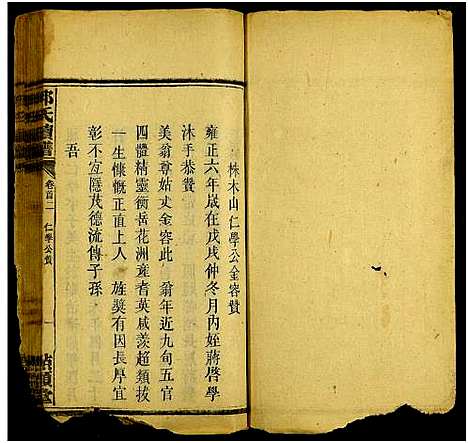 株木山仁學公金容贊
雍正六年歲在戊戌仲冬月內姪蔣啓學
沐手恭贊
美翁尊姑丈金容此　翁年近九旬五官
四體精靈衡岳花洲竟者英咸羡超類拔
一生慷慨正直上人　旌奬有因長厚宜
彰不宜隱茂德流傳子孫
吾
氏續譜
卷首二
仁學公贊